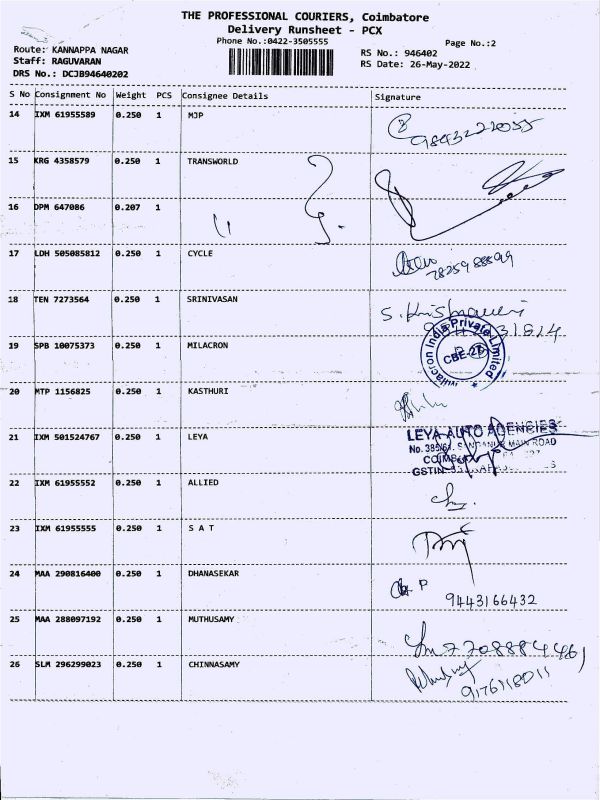 THE PROFESSIONAL COURIERS, Coimbatore
Delivery Runsheet - PCX
Phone No.:0422-3505555
Page No.:2
Route: KANNAPPA NAGAR
Staff: RAGUVARAN
DRS No.: DCJB94640202
RS No.: 946402
RS Date: 26-May-2022
S No Consignment No Weight PCS Consignee Details Signature
14 IXM 61955589 0.250 1 MJP
15 KRG 4358579 0.250 1 TRANSWORLD
16 DPM 647086 0.207 1 "
17 LDH 505085812 0.250 1 CYCLE
18 TEN 7273564 0.250 1 SRINIVASAN
19 SPB 10075373 0.250 1 MILACRON
Milacron India Private Limited
20 MTP 1156825 0.250 1 KASTHURI
21 IXM 501524767 0.250 1 LEYA
LEYA AUTO AGENCIES
MAIN ROAD
GSTIN
22 IXM 61955552 0.250 1 ALLIED
23 IXM 61955555 0.250 1 S A T
24 MAA 290816400 0.250 1 DHANASEKAR
9443166432
25 MAA 288097192 0.250 1 MUTHUSAMY
26 SLM 296299023 0.250 1 CHINNASAMY